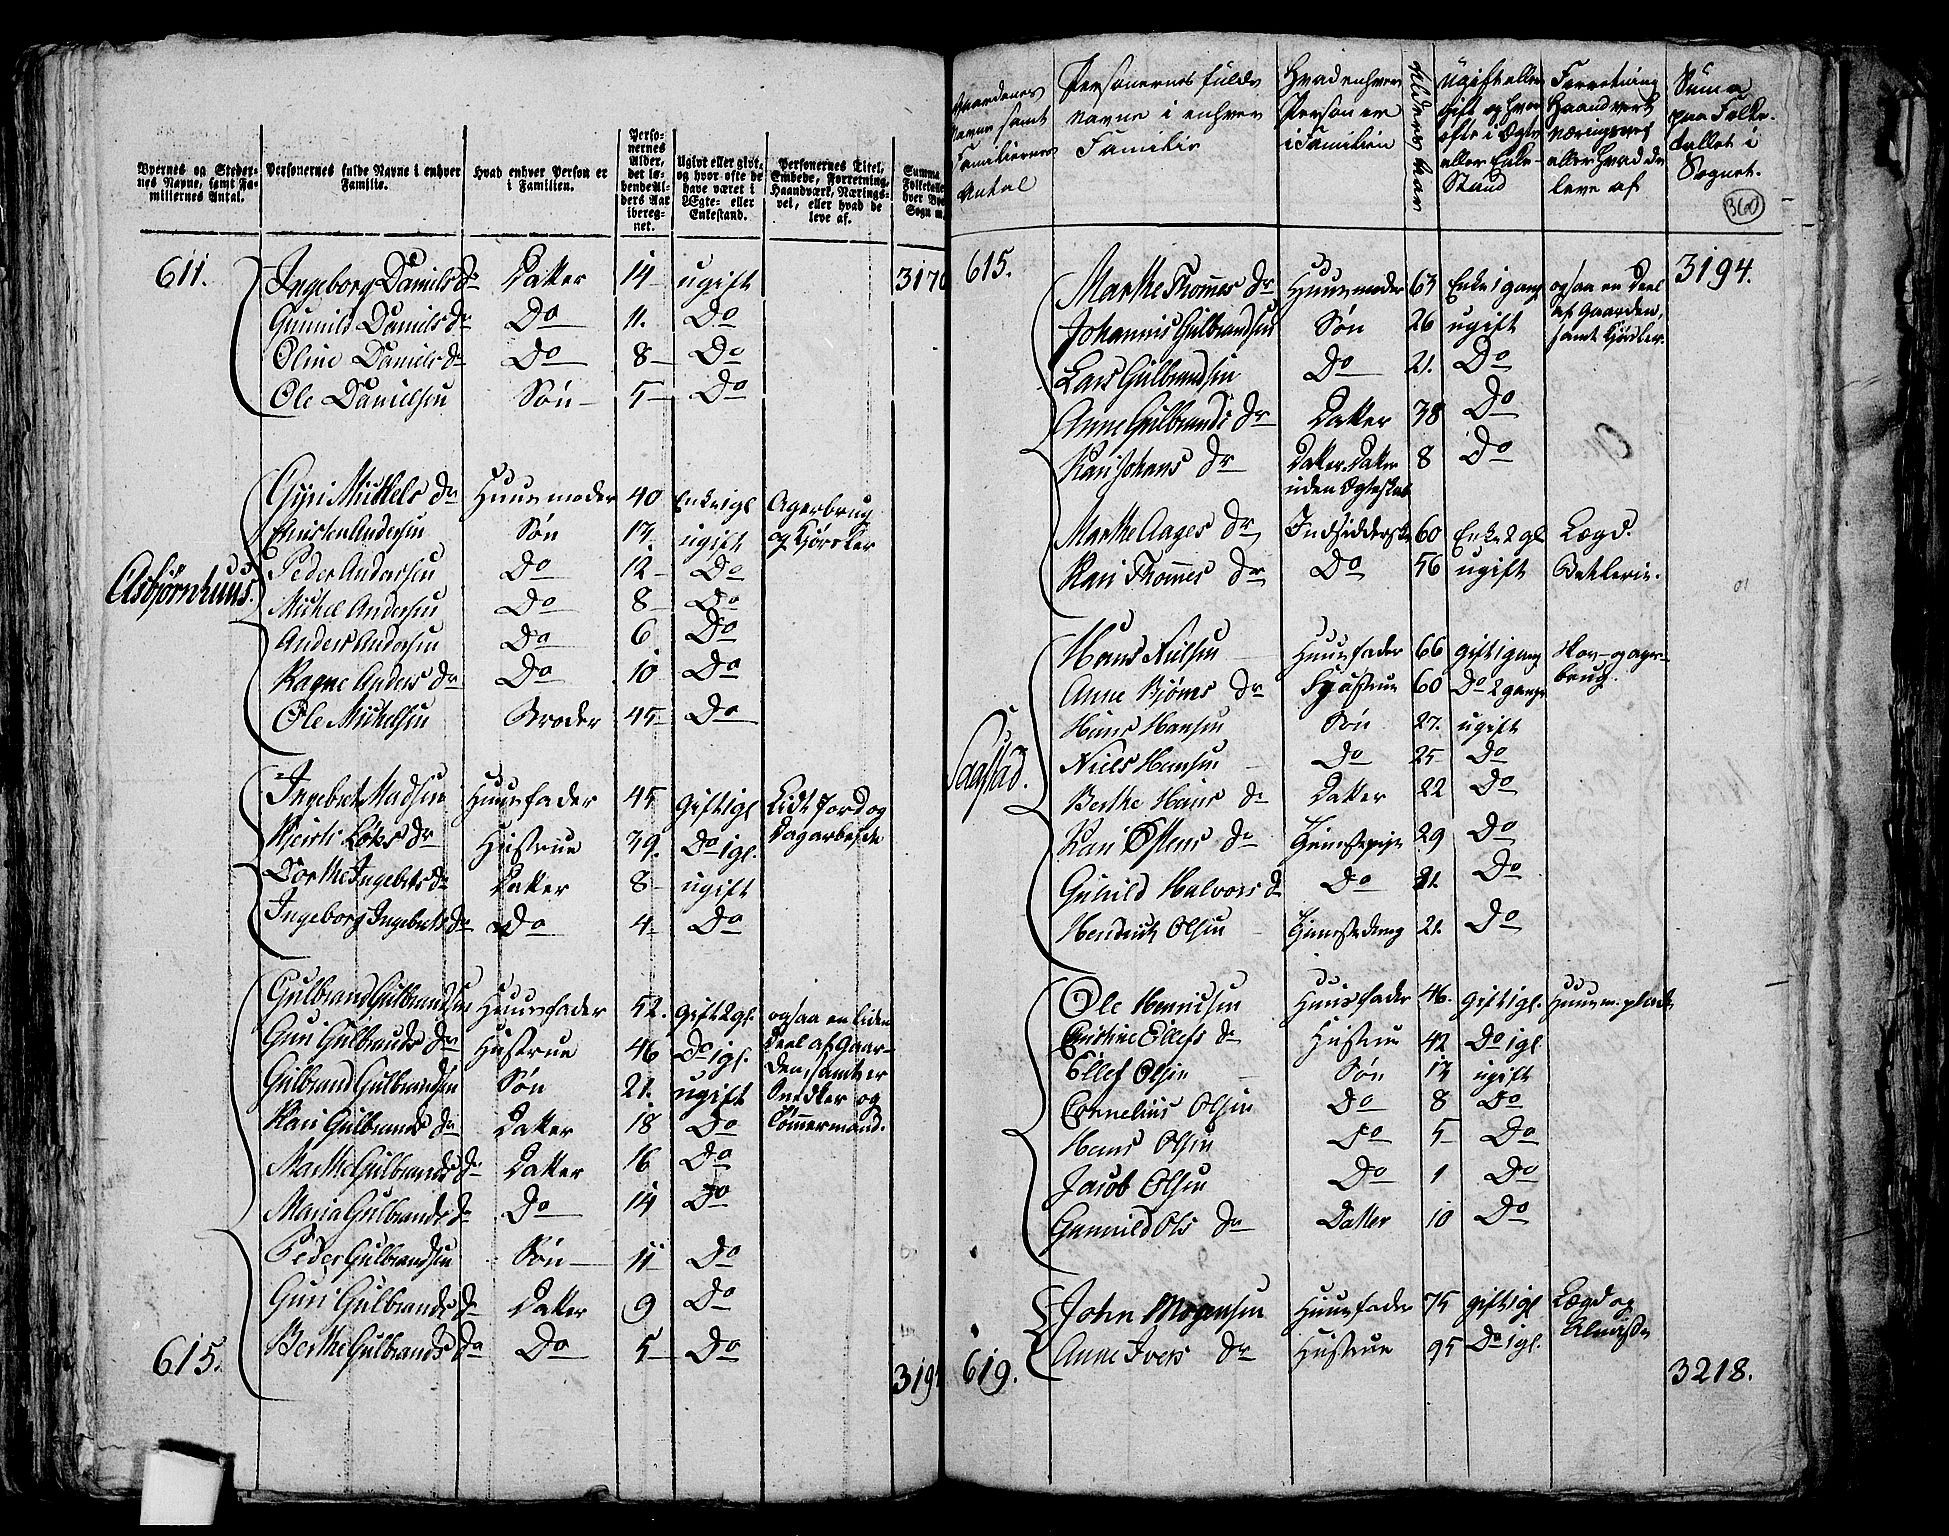 Byernes og Steder-
nes Navne, samt Fa-
miliernes Antal.
Personernes fulde Navne i enhver
Familie.
Hvad enhver Person er
i Familien.
Perso-
nernes
Alder,
det lø-
bende Al-
ders Aar
ibereg-
net.
Ugivt eller givt,
og hvor ofte de
have været i
Ægte- eller
Enkestand.
Personernes Titel,
Embede, Forretning,
Haandværk, Nærings-
vei, eller hvad de
leve af.
Summa
Folketalle
hver Bye
Sogn m.
611. Ingeborg Daniels Dr Datter 14 ugift 3170
Gunnild Daniels Dr Do 11. Do
Oline Daniels Dr Do 8 Do
Ole Danielsen Søn 5 Do
Asbjørnhuus.
Gyri Mickels Dr Huusmoder 40 Enke 1 gl Agerbrug
Christen Andersen Søn 17 ugift og Kjørsler
Peder Andersen Do 12 Do
Mickel Andersen Do 8 Do
Anders Andersen Do 6 Do
Ragne Anders Dr Do 10 Do
Ole Mickelsen Broder 45 Do
Ingebret Madsen Huusfader 45 Gift 1 gl Lidt Jord og
Kjersti Lars Dr Hustrue 39. Do 1 gl. Dagarbejde
Dorthe Ingebrets Dr Datter 8 ugift
Ingeborg Ingebrets Dr Do 4 Do
Gulbrand Gulbrandsen Huusfader 52. Gift 2 gl. ogsaa en liden
Guri Gulbrands Dr Hustrue 46 Do 1 gl. Deel af Gaar-
Gulbrand Gulbrandsen Søn 21. ugift den, samt er
Kari Gulbrands Dr Datter 18 Do Snedker og
Marthe Gulbrands Dr Datter 16 Do Tømmermand.
Maria Gulbrands Dr Do 14 Do
Peder Gulbrandsen Søn 11 Do
Guri Gulbrands Dr Datter 9 Do
615. Berthe Gulbrands Dr Do 5 Do
319
Gaardenes
Navne samt
Familiernes
Antal
Personernes fulde
navne i enhver
Familie
Hvad enhver
Person er
i Familien
Alders Aar
Ugift eller
gift og hvor
ofte i Ægte
eller Enke-
Stand
Forretning
Haandverk
næringsvej
eller hvad de
leve af
Suma
paa Folke-
tallet i
Sognet.
360
615. Marthe Thommes Dr Huusmoder 63 Enke 1 gang ogsaa en Deel 3194.
Johannis Gulbrandsen Søn 26 ugift af Gaarden,
Lars Gulbrandsen Do 21. Do samt Kjørsler.
Anne Gulbrands Dr Datter 38 Do
Kari Johans Dr Datter Datter 8 Do
uden Ægteskab
Marthe Aages Dr Indsidderske 60 Enke 2 gl Lægd.
Kari Thommes Dr Do 56 ugift Betlerie.
Saastad.
Hans Nielsen Huusfader 66 gift 1 gang Skov- og ager-
Anne Bjørns Dr Hustrue 60 Do 2 gange brug.
Hans Hansen Søn 27. ugift
Niels Hansen Do 25 Do
Berthe Hans Dr Datter 22 Do
Kari Ostens Dr Tjenestepige 29 Do
Gunild Halvors Dr Do 21. Do
Hendrick Olsen Tjenestedreng 21. Do
Ole Hansen Huusfader 46. gift 1 gl. Huusm. plads
Christine Ellefs Dr Hustrue 42 Do 1 gl.
Ellef Olsen Søn 13 ugift
Cornelius Olsen Do 8 Do
Hans Olsen Do 5 Do
Jacob Olsen Do 1 Do
Gunnild Ols Dr Datter 10 Do
John Mogensen Huusfader 75 gift 1 gl Lægd og
619. Anne Ivers Dr Hustrue 95 Do 1 gl. Almisse
3218.